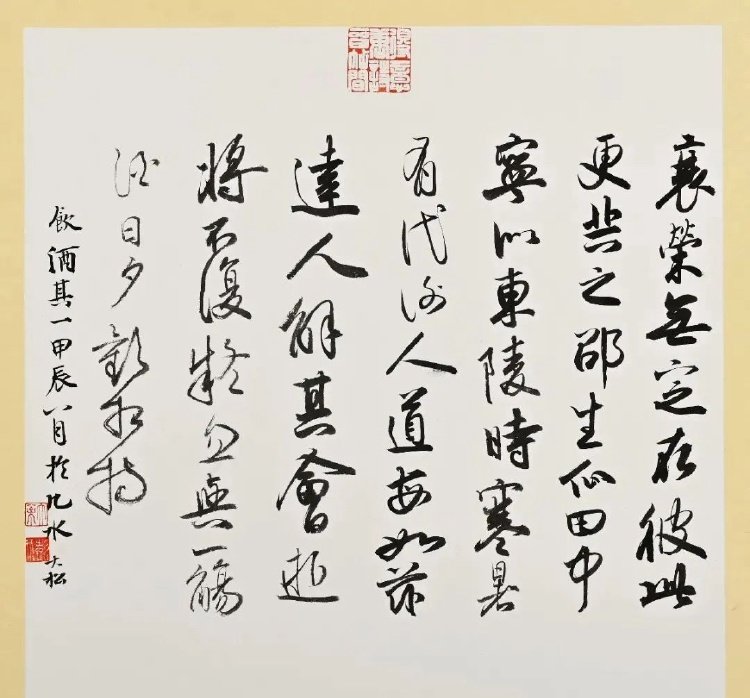 得意唐詩晉帖間
衰榮無定在彼此
更共之邵生瓜田中
寧似東陵時寒暑
有代謝人道每如茲
達人解其會逝
將不復疑忽與一觴
酒日夕歡相持
飲酒其一甲辰八月於九水大松